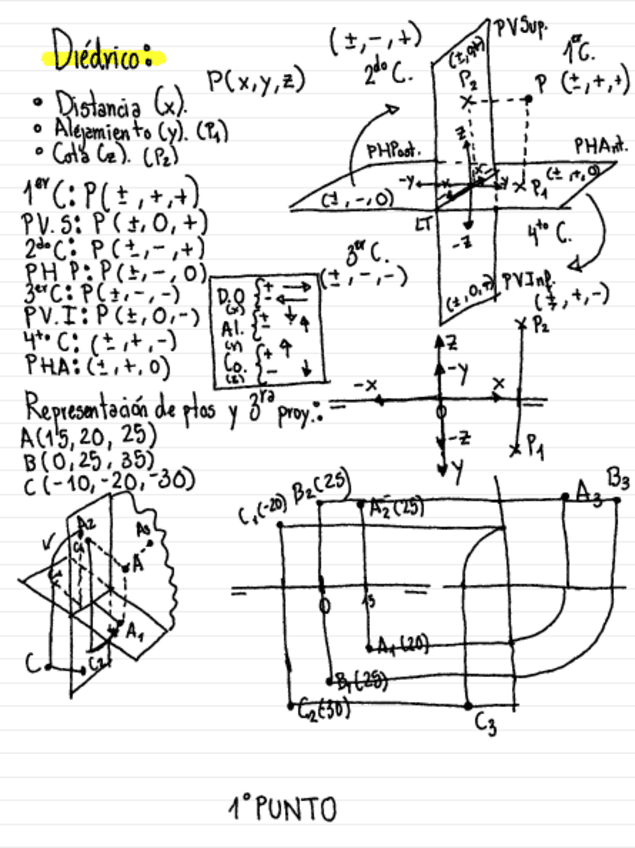 Diédrico:
P(x,y,z)
• Distancia (x).
• Alejamiento (y). (P1)
• Cota (z). (P2)
1er C: P(±,+,+)
PV.S: P(±,0,+)
2do C: P(±,-,+)
PH P: P(±,-,0)
3er C: P(±,-,-)
PV.I: P(±,0,-)
4to C: (±,+,-)
PHA: (±,+,0)
(±,-,+)
2do C.
PVSup.
(±,0,+)
1er C.
P2
P (±,+,+)
Z
PHPost.
PHAnt.
-y
x
y
P1
(±,+,0)
(±,-,0)
LT
-Z
4to C.
3er C.
(±,-,-)
PVInf.
(±,0,+)
(±,+,-)
D.O { + →
(x) - ←
Al. { + ↓
(y) - ↑
Co. { + ↑
(z) - ↓
Z
-y
P2
-x
x
0
-Z
y
P1
Representación de ptos y 3ra proy.:
A(15, 20, 25)
B(0, 25, 35)
C(-10, -20, -30)
A2
A3
C1
A
A1
C
C2
C1(-20)
B2(25)
A2(25)
A3
B3
0
15
A1(20)
B1(25)
C2(30)
C3
1° PUNTO